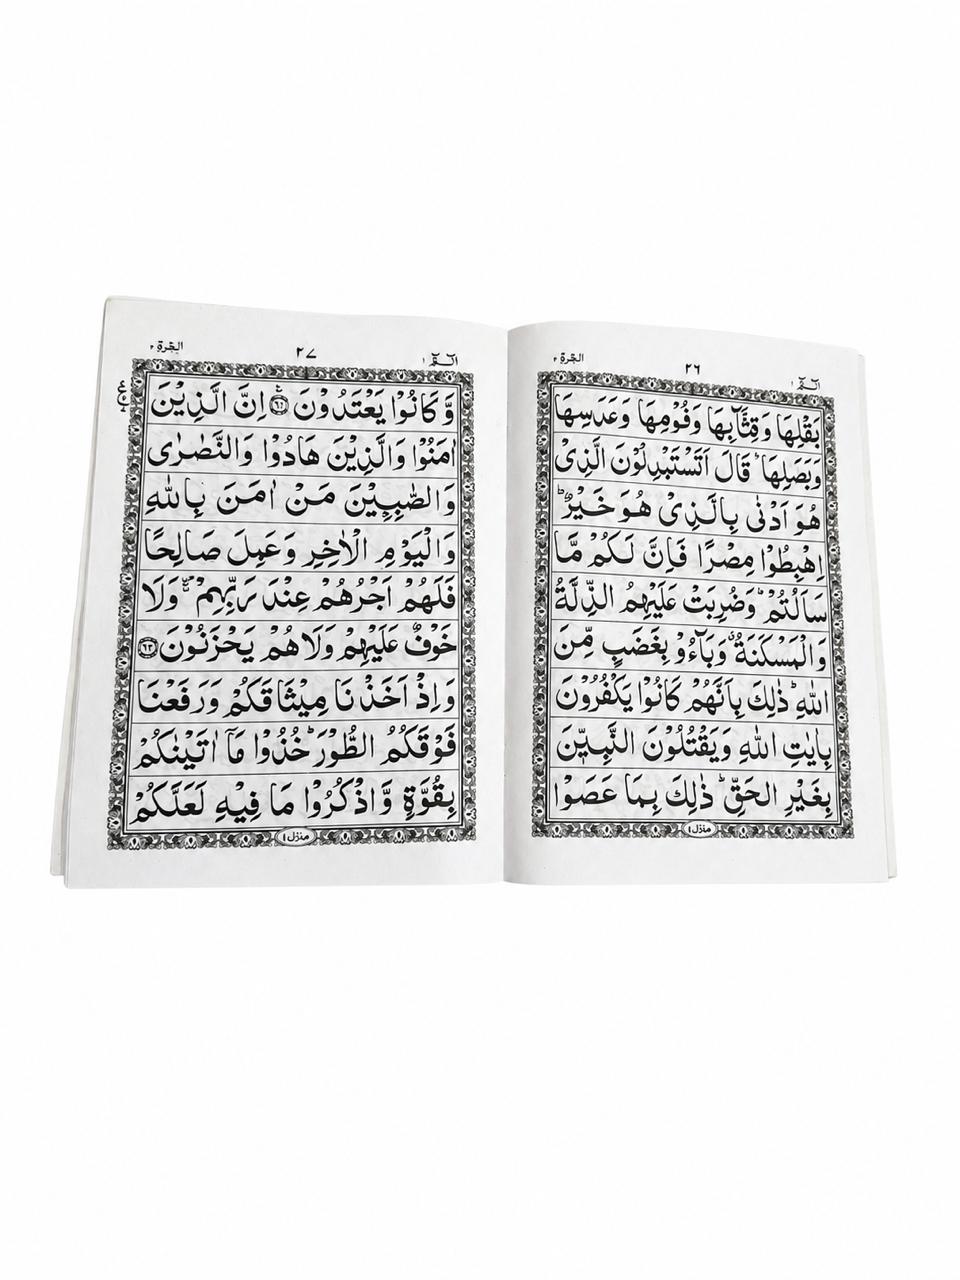 البقرة ٢
٢٦
الٓمّٓ ١
بَقْلِهَا وَقِثَّآئِهَا وَفُوْمِهَا وَعَدَسِهَا
وَبَصَلِهَا ؕ قَالَ اَتَسْتَبْدِلُوْنَ الَّذِىْ
هُوَ اَدْنٰى بِالَّذِىْ هُوَ خَيْرٌ ؕ
اِهْبِطُوْا مِصْرًا فَاِنَّ لَكُمْ مَّا
سَاَلْتُمْ ؕ وَضُرِبَتْ عَلَيْهِمُ الذِّلَّةُ
وَالْمَسْكَنَةُ ۗ وَبَآءُوْ بِغَضَبٍ مِّنَ
اللّٰهِ ؕ ذٰلِكَ بِاَنَّهُمْ كَانُوْا يَكْفُرُوْنَ
بِاٰيٰتِ اللّٰهِ وَيَقْتُلُوْنَ النَّبِيّٖنَ
بِغَيْرِ الْحَقِّ ؕ ذٰلِكَ بِمَا عَصَوْا
منزل ١
البقرة ٢
٢٧
الٓمّٓ ١
وَّكَانُوْا يَعْتَدُوْنَ ۝٦١ اِنَّ الَّذِيْنَ
اٰمَنُوْا وَالَّذِيْنَ هَادُوْا وَالنَّصٰرٰى
وَالصّٰبِـِٕيْنَ مَنْ اٰمَنَ بِاللّٰهِ
وَالْيَوْمِ الْاٰخِرِ وَعَمِلَ صَالِحًا
فَلَهُمْ اَجْرُهُمْ عِنْدَ رَبِّهِمْ ۚ وَلَا
خَوْفٌ عَلَيْهِمْ وَلَا هُمْ يَحْزَنُوْنَ ۝٦٢
وَاِذْ اَخَذْنَا مِيْثَاقَكُمْ وَرَفَعْنَا
فَوْقَكُمُ الطُّوْرَ ؕ خُذُوْا مَآ اٰتَيْنٰكُمْ
بِقُوَّةٍ وَّاذْكُرُوْا مَا فِيْهِ لَعَلَّكُمْ
منزل ١